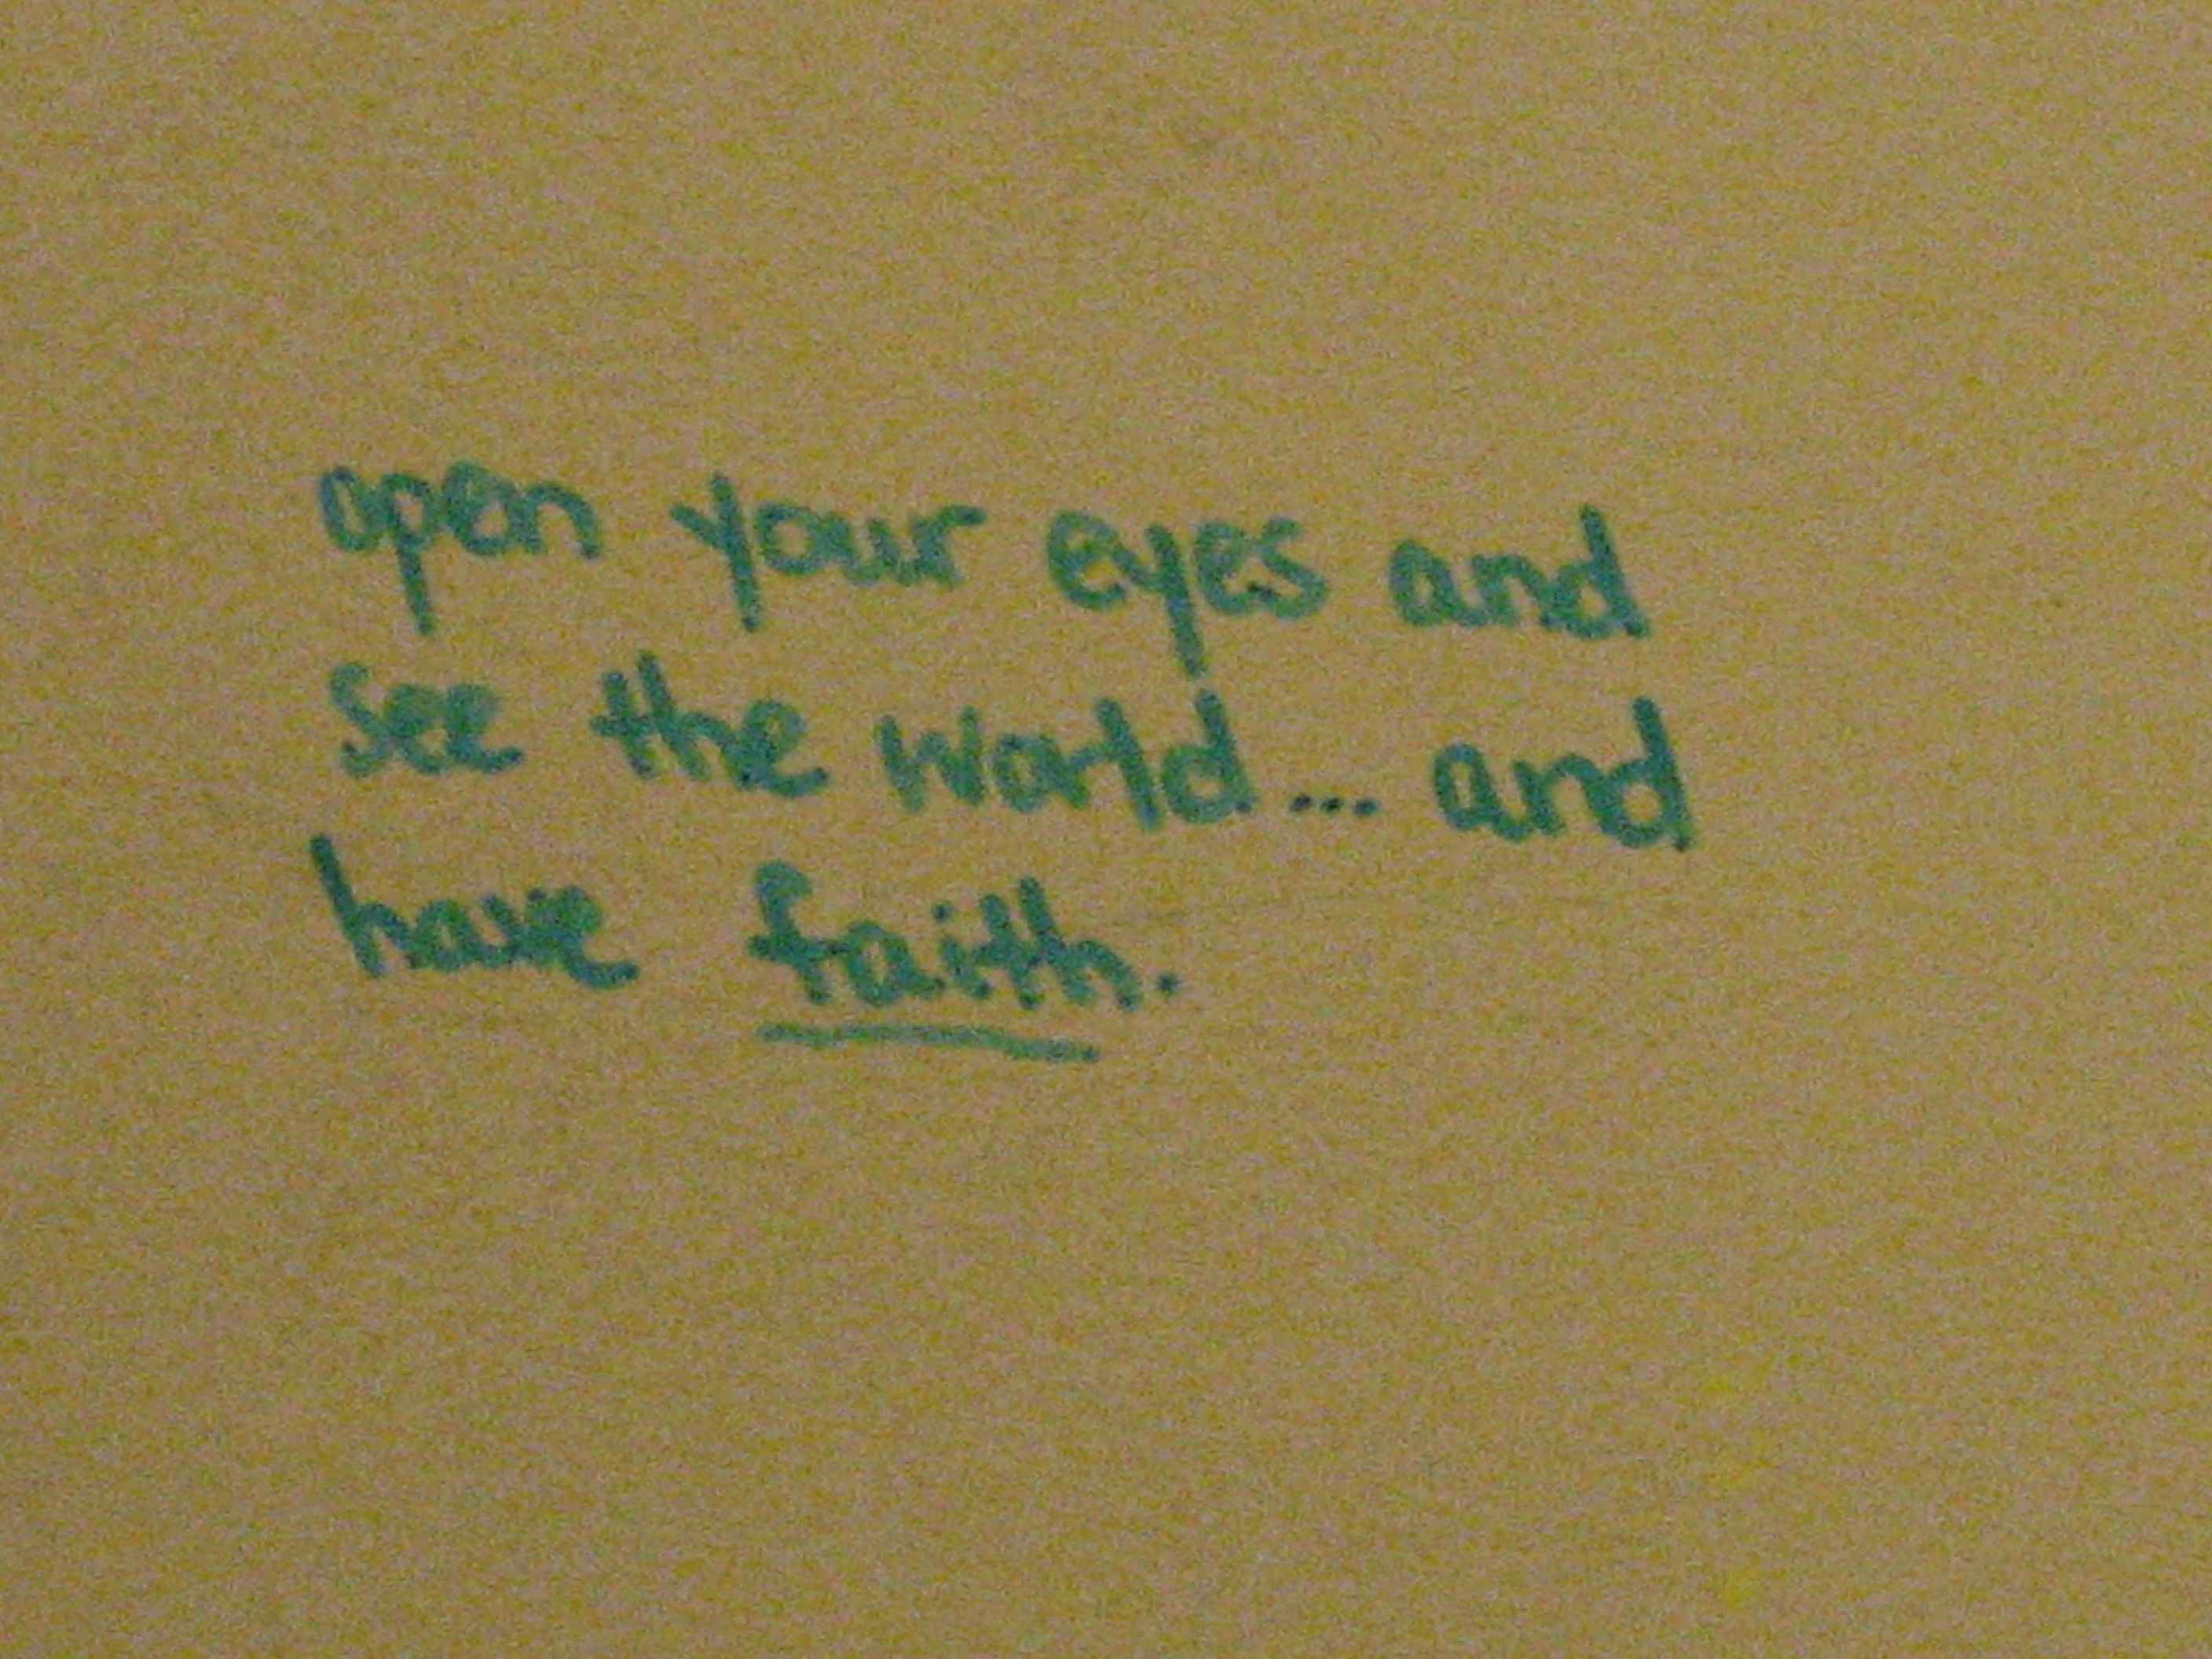 open your eyes and
see the world... and
have faith.